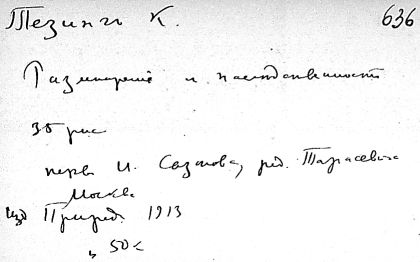 Тезингъ К. 636
Размножение и наследственность
35 рис
перев И. Сазонова, ред. Тарасевича
Москва
изд Природа 1913
ц 50 к